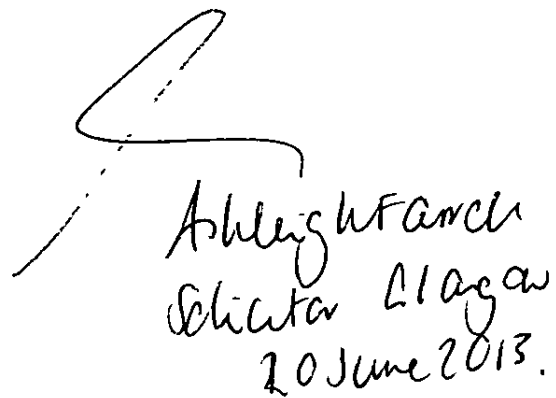 Ashleigh
Solicitor Glasgow
20 June 2013.